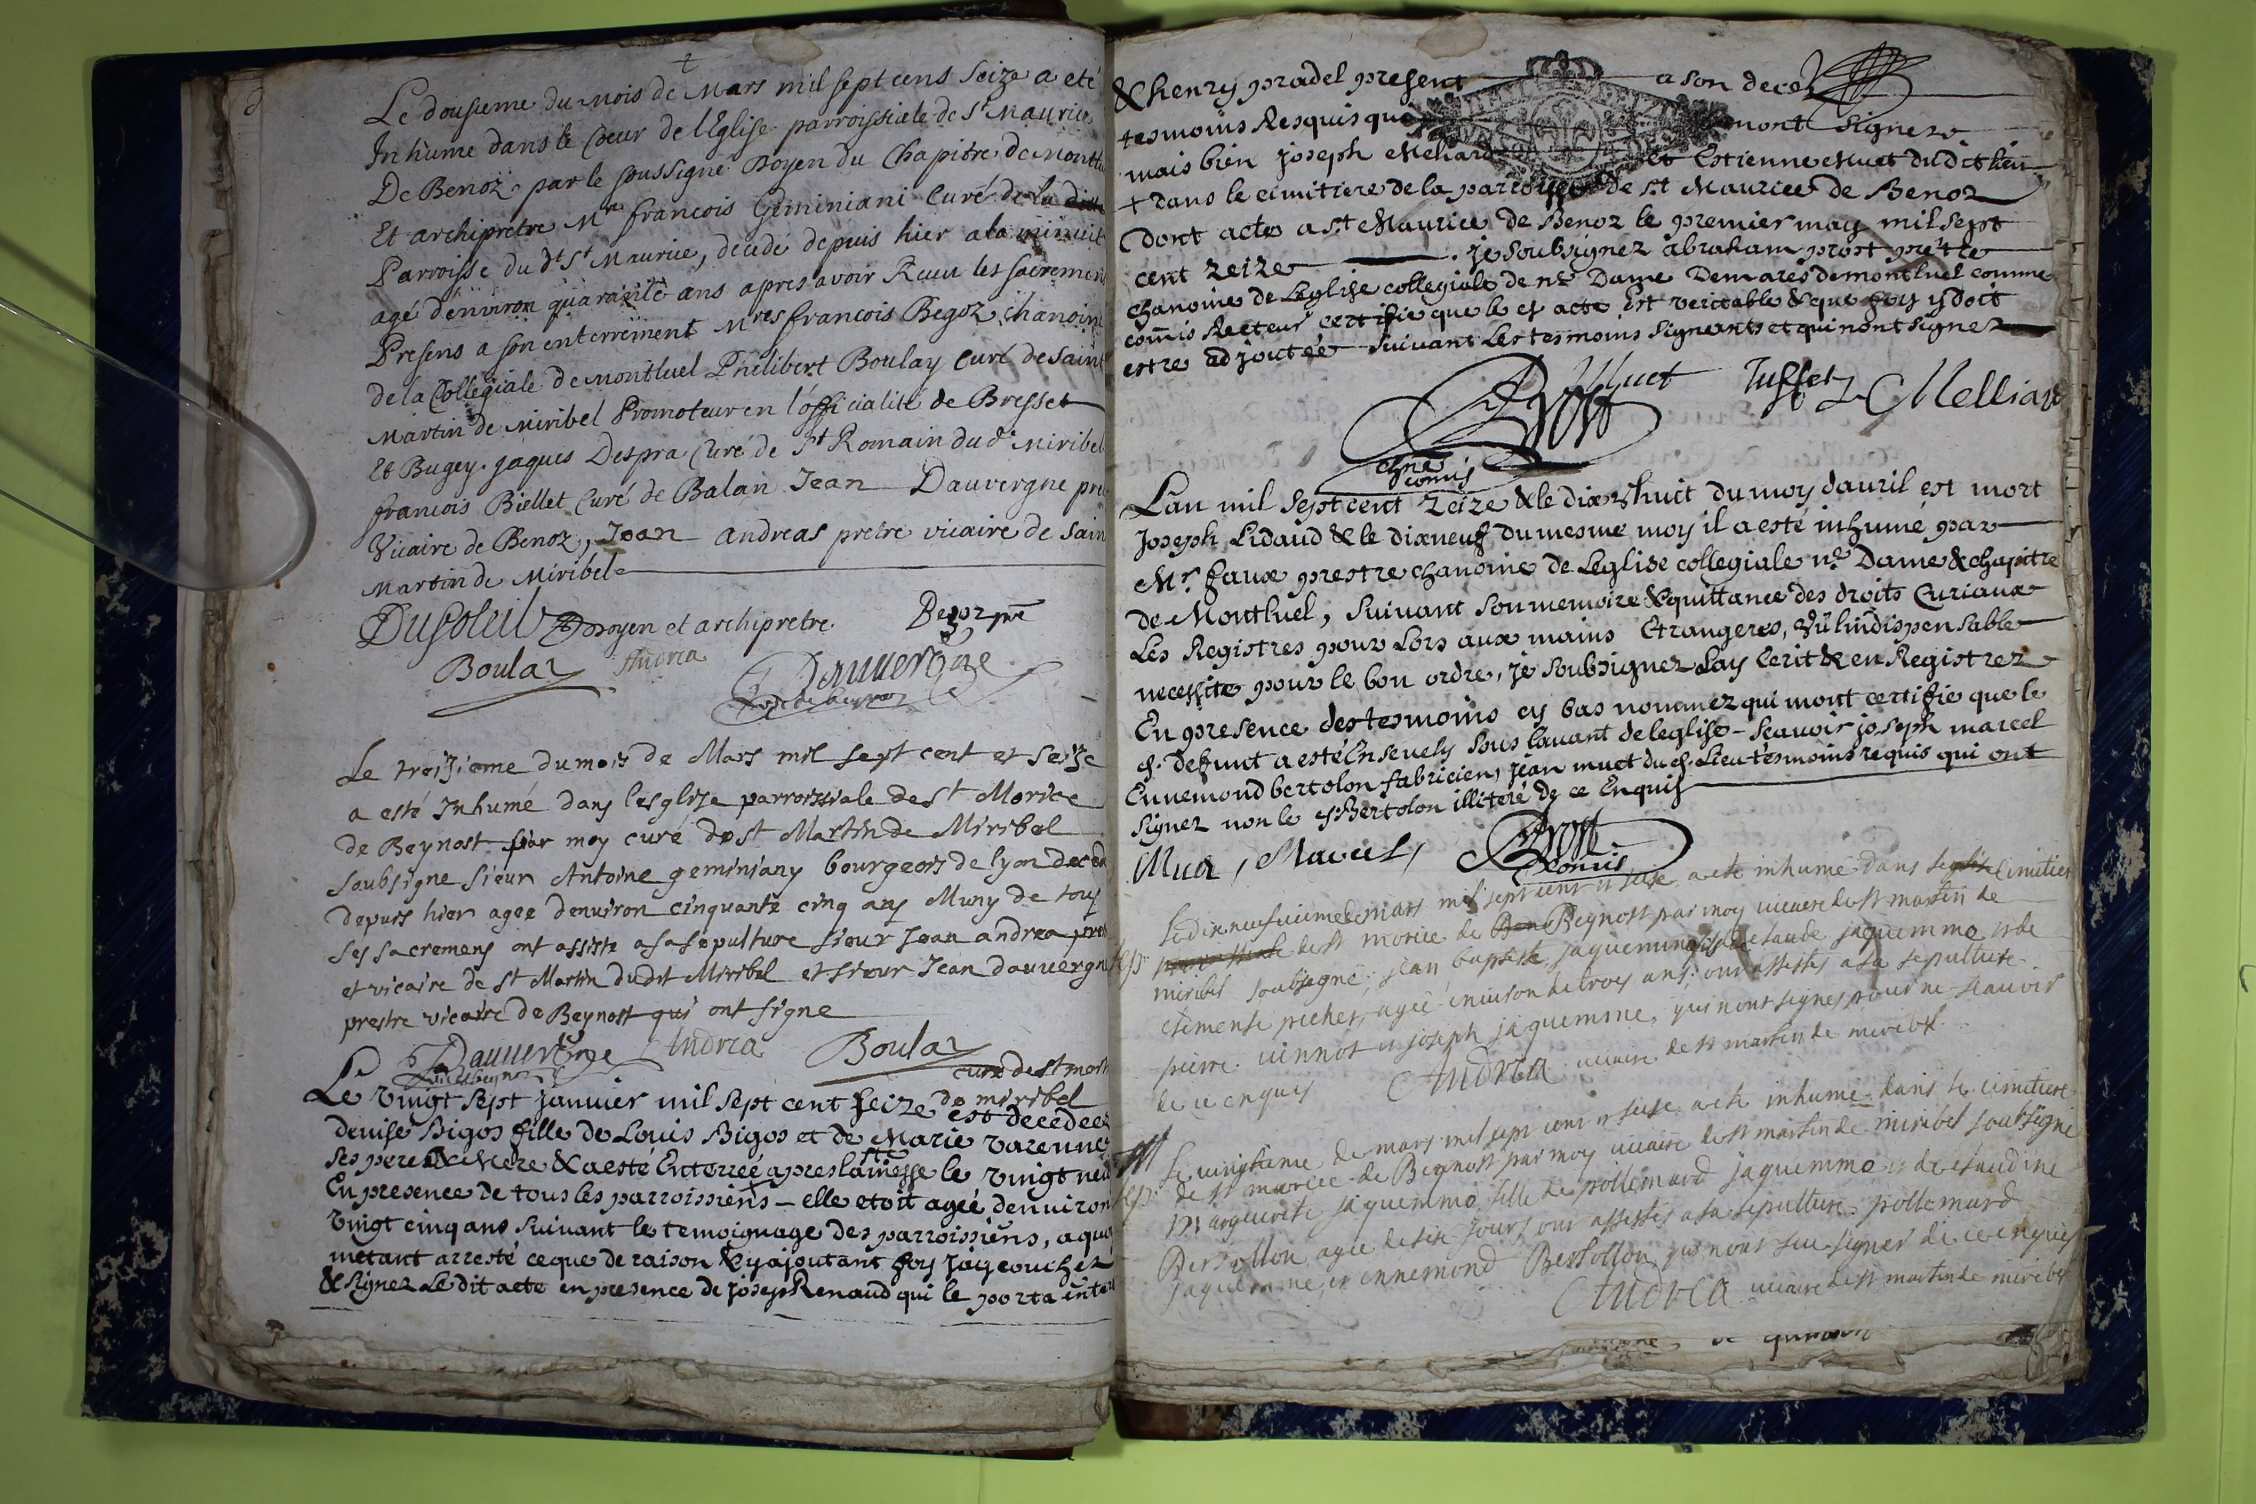 Le dousieme du mois de Mars mil sept cens seize a eté
Inhumé dans le Coeur de l'Eglise parroissiale de St Maurice
De Benoz par le soussigné Doyen du Chapitre de Montl
Et archiprêtre Mre francois Geminiani Curé de la ditte
Parroisse du dt St Maurice, decedé depuis hier a la minuit
agé d'environ quarante ans apres avoir Receu les sacremens
Presens a son enterrement Mres francois Begoz chanoine
de la Collegiale de Montluel Philibert Boulay Curé de Saint
Martin de Miribel Promoteur en l'officialité de Bresse
Et Bugey. jaques Despra Curé de St Romain du d. Miribel
francois Biellet Curé de Balan Jean Dauvergne pre
Vicaire de Benoz, Jean Andreas pretre vicaire de Sain
Martin de Miribel
Dusoleil Doyen et archipretre. Begoz pre
Boulay Andrea Dauvergne
Le troizieme du mois de Mars mil sept cent et seize
a esté inhumé dans lesglize parroissiale de St Morice
de Beynost par moy curé de St Martin de Miribel
soubsigne sieur Antoine geminiany bourgeois de lyon deced
depuis hier agee denviron cinquante cinq ans Muny de tous
ses sacremens ont assiste a sa sepulture sieur Jean andrea pres
et vicaire de St Martin dudit Miribel et sieur Jean dauvergne
prestre vicaire de Beynost qui ont signe
Dauvergne Andrea Boulay
curé de St mart
de miribel
Le vingt sept janvier mil sept cent seize est decedeé
denise Bigos fille de Louis Bigos et de Marie varenne
ses pere & Mere & a esté Enterreé apres la messe le vingt neu
En presence de tous les parroissiens - elle etoit ageé denviron
vingt cinq ans suivant le temoignage des parroissiens, a quoy
metant arresté ce que de raison & y ajoutant foy jay couché
& signez Le dit acte en presence de joseph Renaud qui le porta
& henry pradel present a son deces
tesmoins Resquis que nont signez
mais bien joseph Meliard et Estienne Muet du dit lieu
+ dans le cimitiere de la parroisse de st Maurice de Benoz
Dont acte a St Maurice de Benoz le premier may mil sept
cent zeize . je soubsignez abraham prost prêtre
chanoine de Leglise collegiale de ne Dame Demares de montluel comme
comis Recteur certifie que le cy acte Est veritable & que foy y doit
estre adjouteé suivant Les tesmoins signants et qui nont signez
Muet Prost Melliard
chne
comis
Lan mil sept cent zeize & le dix huit du moy davril est mort
joseph Lidaud & le dixneuf du mesme moy il a esté inhumé par
Mr. faux prestre chanoine de Leglise collegiale ne Dame & chapitre
de Montluel, suivant son memoire & quittance des droits Curiaux
Les Registres pour Lors aux mains Etrangeres, vü lindispensable
necessite pour le bon ordre, je soubsignez Lay Ecrit & en Registrez
En presence des tesmoins cy bas nommez qui mont certifie que le
d. defunt a esté Ensevely sous lavant de leglise - scavoir joseph marcel
Ennemond bertolon fabricien, jean muet du d. Lieu tesmoins requis qui ont
signez non le d. Bertolon illiteré de ce Enquis
Muet, Marcel, Prost
Comis
Le dix neufvieme de mars mil sept cent et seise a eté inhumé dans le cimitier
de st morice de Beynost par moy vicaire de st martin de
miribel soubsigné, jean baptiste jaquemmo fils de jaquemmo et de
clemense pechet, ageé environ de troys ans, ont assistes a sa sepulture
pierre viennot et joseph jaquemme, qui nont signes pour ne scauoir
de ce enquis Andrea vicaire de st martin de miribel
Le vingtieme de mars mil sept cent et seise a eté inhumé dans le cimitiere
de st maurice de Beynost par moy vicaire de st martin de miribel soubsigné
marguerite jaquemmo fille de pollemard jaquemmo et de claudine
Bertollon agee de six jours ont assistes a sa sepulture pollemard
jaquemme, et ennemond Bertollon qui nont sceu signer de ce enquis
Andrea vicaire de st martin de miribel